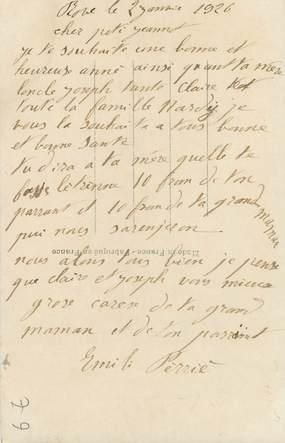 le 2 janvie 1926
cher peti jeannot
je te souhaite une bonne et
heureus anné ainsi qua ta mère
loncle joseph tante Claire
toute la famille Hardy je
vous la souhaita a tous bonne
et bonne santé
tu dira a ta mère quelle te
letrenne 10 fran de ton
parrant et 10 fran de ta grand
maman
pui nous sarenjeron
nous alons tous bien je pense
que claire et joseph vons mieux
grose carese de ta grand
maman et de ton parrint
Emili Perrié
Made in France - Fabriqué en France